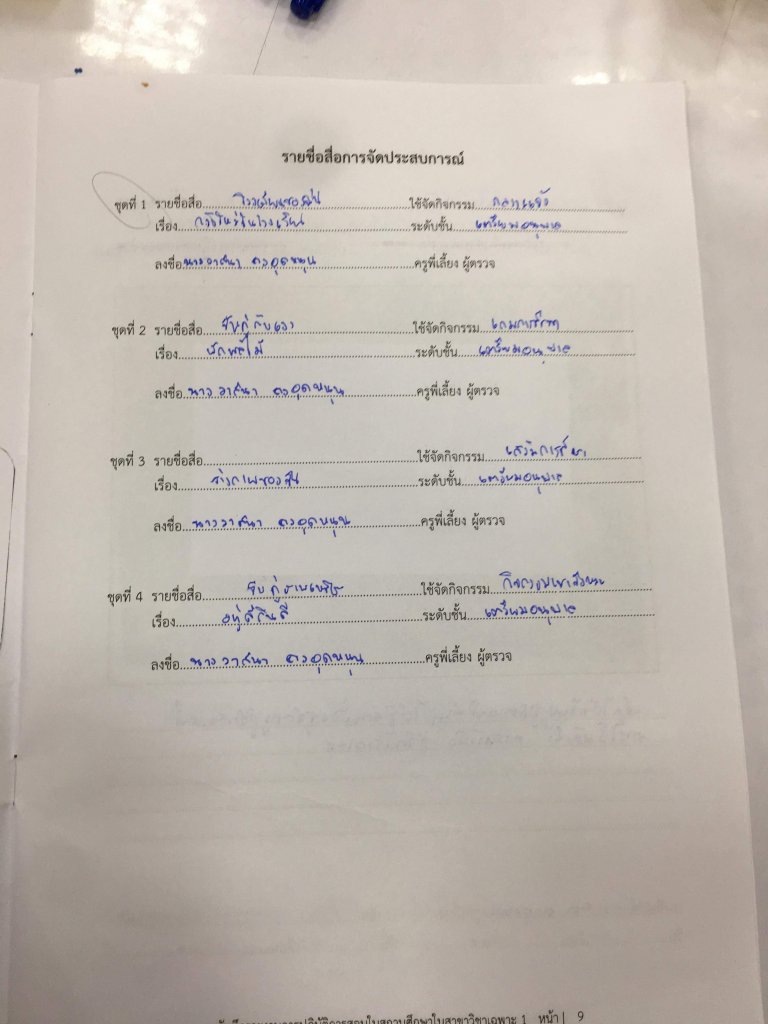 รายชื่อสื่อการจัดประสบการณ์
ชุดที่ 1 รายชื่อสื่อ ใช้จัดกิจกรรม กลางแจ้ง
เรื่อง ระดับชั้น เตรียมอนุบาล
ลงชื่อ นางวาสนา คงอุดหนุน ครูพี่เลี้ยง ผู้ตรวจ
ชุดที่ 2 รายชื่อสื่อ จับคู่กับเงา ใช้จัดกิจกรรม เกมการศึกษา
เรื่อง ผักผลไม้ ระดับชั้น เตรียมอนุบาล
ลงชื่อ นางวาสนา คงอุดหนุน ครูพี่เลี้ยง ผู้ตรวจ
ชุดที่ 3 รายชื่อสื่อ ใช้จัดกิจกรรม เสริมการศึกษา
เรื่อง ร่างกายของฉัน ระดับชั้น เตรียมอนุบาล
ลงชื่อ นางวาสนา คงอุดหนุน ครูพี่เลี้ยง ผู้ตรวจ
ชุดที่ 4 รายชื่อสื่อ จับคู่ ใช้จัดกิจกรรม
เรื่อง ระดับชั้น เตรียมอนุบาล
ลงชื่อ นางวาสนา คงอุดหนุน ครูพี่เลี้ยง ผู้ตรวจ
การปฏิบัติการสอนในสถานศึกษาในสาขาวิชาเฉพาะ 1 หน้า | 9